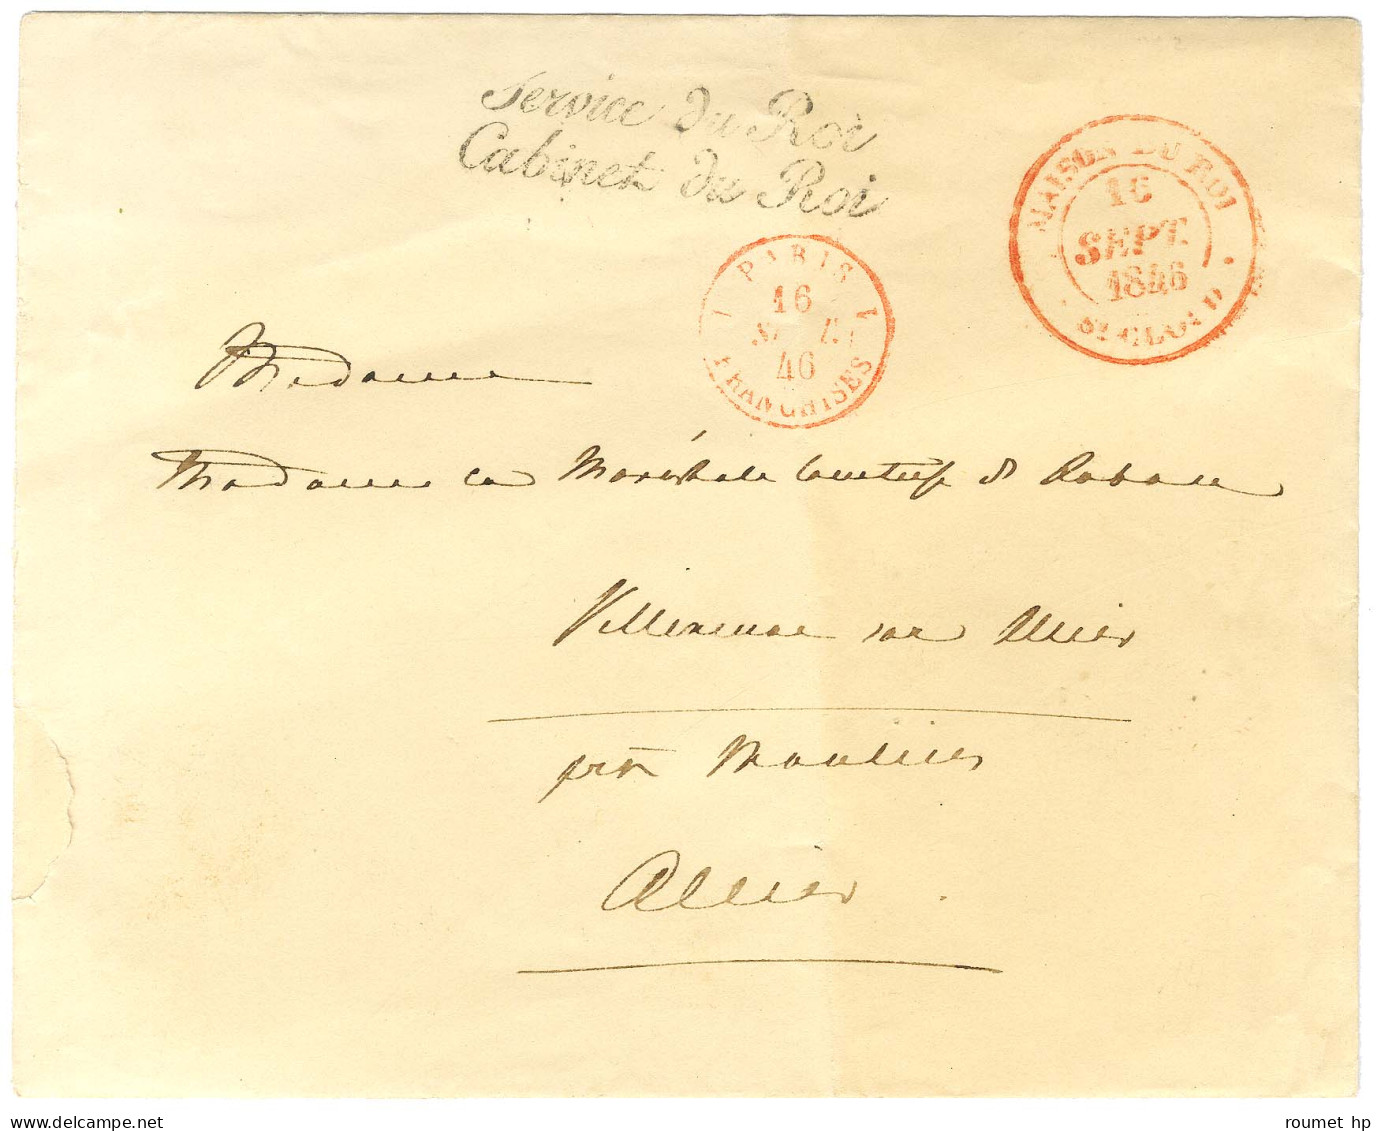 Service du Roi
Cabinet du Roi
MAISON DU ROI
16
SEPT.
1846
St CLOUD
1 PARIS 1
16
SEPT.
46
FRANCHISES
Madame
Madame la Maréchale Comtesse de Lobau
Villeneuve sur Allier
près Moulins
Allier
roumet hp